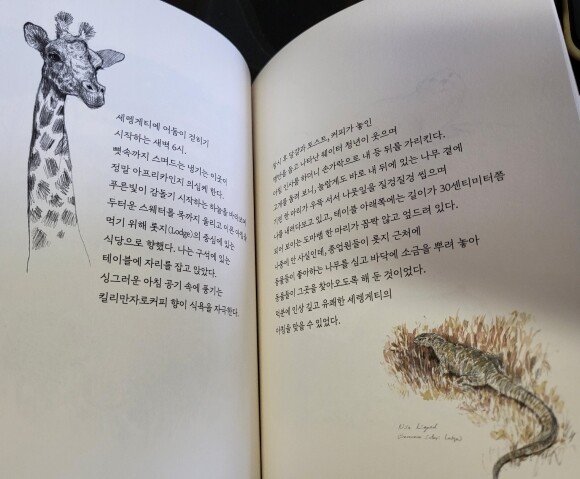 세렝게티에 어둠이 걷히기
시작하는 새벽 6시.
뼛속까지 스며드는 냉기는 이곳이
정말 아프리카인지 의심케 한다.
푸른빛이 감돌기 시작하는 하늘을
두터운 스웨터를 목까지 올리고 이른 아침을
먹기 위해 롯지(Lodge)의 중심에 있는
식당으로 향했다. 나는 구석에 있는
테이블에 자리를 잡고 앉았다.
싱그러운 아침 공기 속에 풍기는
킬리만자로커피 향이 식욕을 자극한다.
잠시 후 달걀과 토스트, 커피가 놓인
쟁반을 들고 나타난 웨이터 청년이 웃으며
아침 인사를 하더니 손가락으로 내 등 뒤를 가리킨다.
고개를 돌려 보니, 놀랍게도 바로 내 뒤에 있는 나무 곁에
기린 한 마리가 우뚝 서서 나뭇잎을 질겅질겅 씹으며
나를 내려다보고 있고, 테이블 아래쪽에는 길이가 30센티미터쯤
되어 보이는 도마뱀 한 마리가 꼼짝 않고 엎드려 있다.
나중에 안 사실인데, 종업원들이 롯지 근처에
동물들이 좋아하는 나무를 심고 바닥에 소금을 뿌려 놓아
동물들이 그곳을 찾아오도록 해 둔 것이었다.
덕분에 인상 깊고 유쾌한 세렝게티의
아침을 맞을 수 있었다.
Nile Lizard